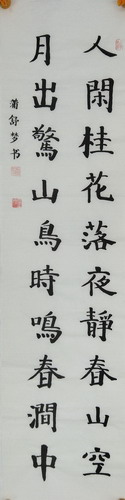 人閑桂花落夜靜春山空
月出驚山鳥時鳴春澗中
蒲舒梦书